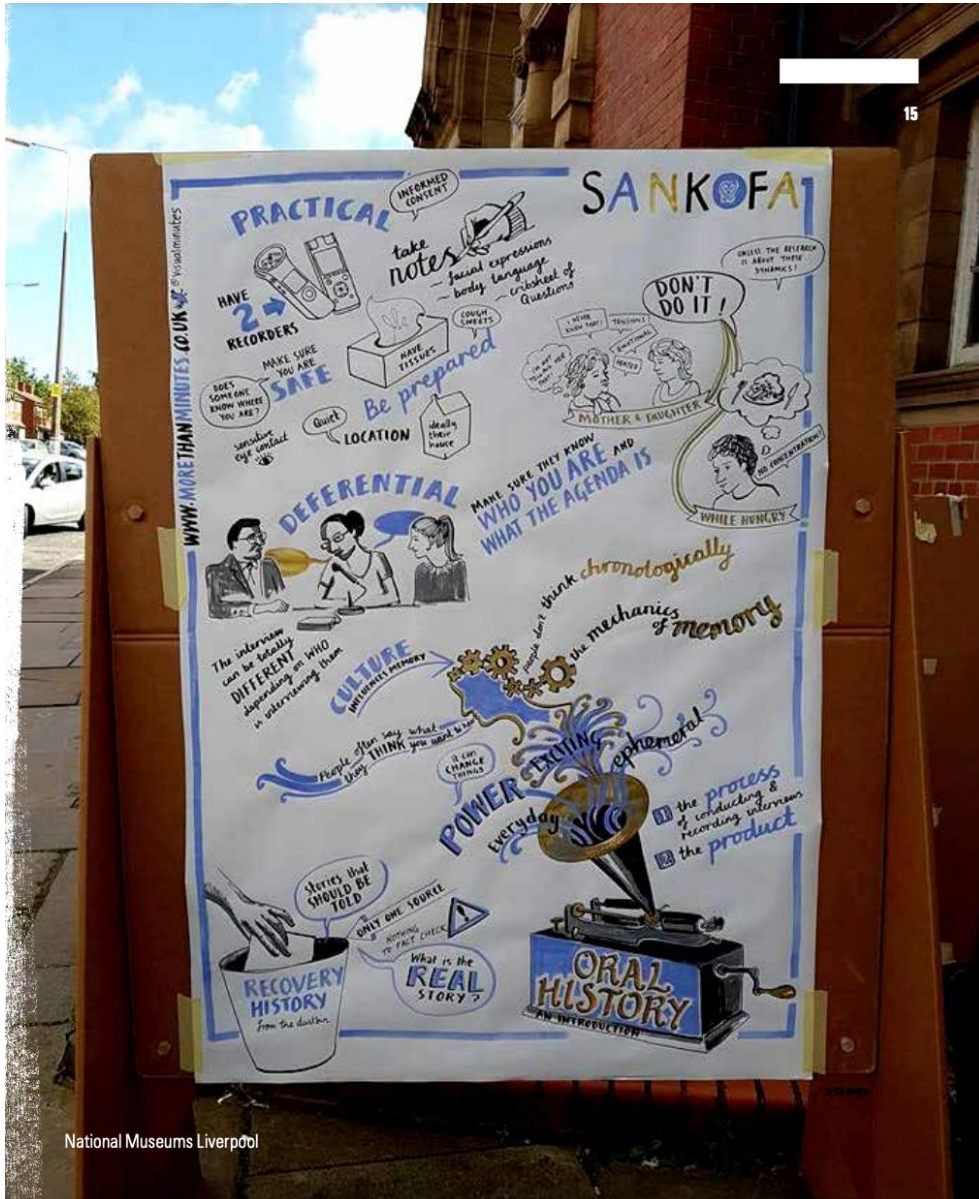 15
SANKOFA
WWW.MORETHANMINUTES.CO.UK
@visualminutes
PRACTICAL
INFORMED
CONSENT
HAVE
2
RECORDERS
take
notes
- facial expressions
- body language
- cribsheet of
Questions
HAVE
TISSUES
COUGH
SWEETS
Be prepared
MAKE SURE
YOU ARE
SAFE
DOES
SOMEONE
KNOW WHERE
YOU ARE?
sensitive
eye contact
Quiet
LOCATION
ideally
their
house
UNLESS THE RESEARCH
IS ABOUT THESE
DYNAMICS!
DON'T
DO IT!
I NEVER
KNEW THAT!
TENSIONS
EMOTIONAL
HEATED
I'M NOT
TELLING HER
THAT!
MOTHER & DAUGHTER
NO CONCENTRATION!
WHILE HUNGRY
DEFERENTIAL
MAKE SURE THEY KNOW
WHO YOU ARE AND
WHAT THE AGENDA IS
The interview
can be totally
DIFFERENT
depending on WHO
is interviewing them
people don't think chronologically
the mechanics
of memory
CULTURE
INFLUENCES MEMORY
People often say what
they THINK you want to hear
it can
CHANGE
THINGS
POWER
EXCITING
ephemeral
Everyday
1 the process
of conducting &
recording interviews
2 the product
Stories that
SHOULD BE
TOLD
ONLY ONE SOURCE
NOTHING
TO FACT CHECK
What is the
REAL
STORY?
RECOVERY
HISTORY
from the dustbin
ORAL
HISTORY
AN INTRODUCTION
National Museums Liverpool